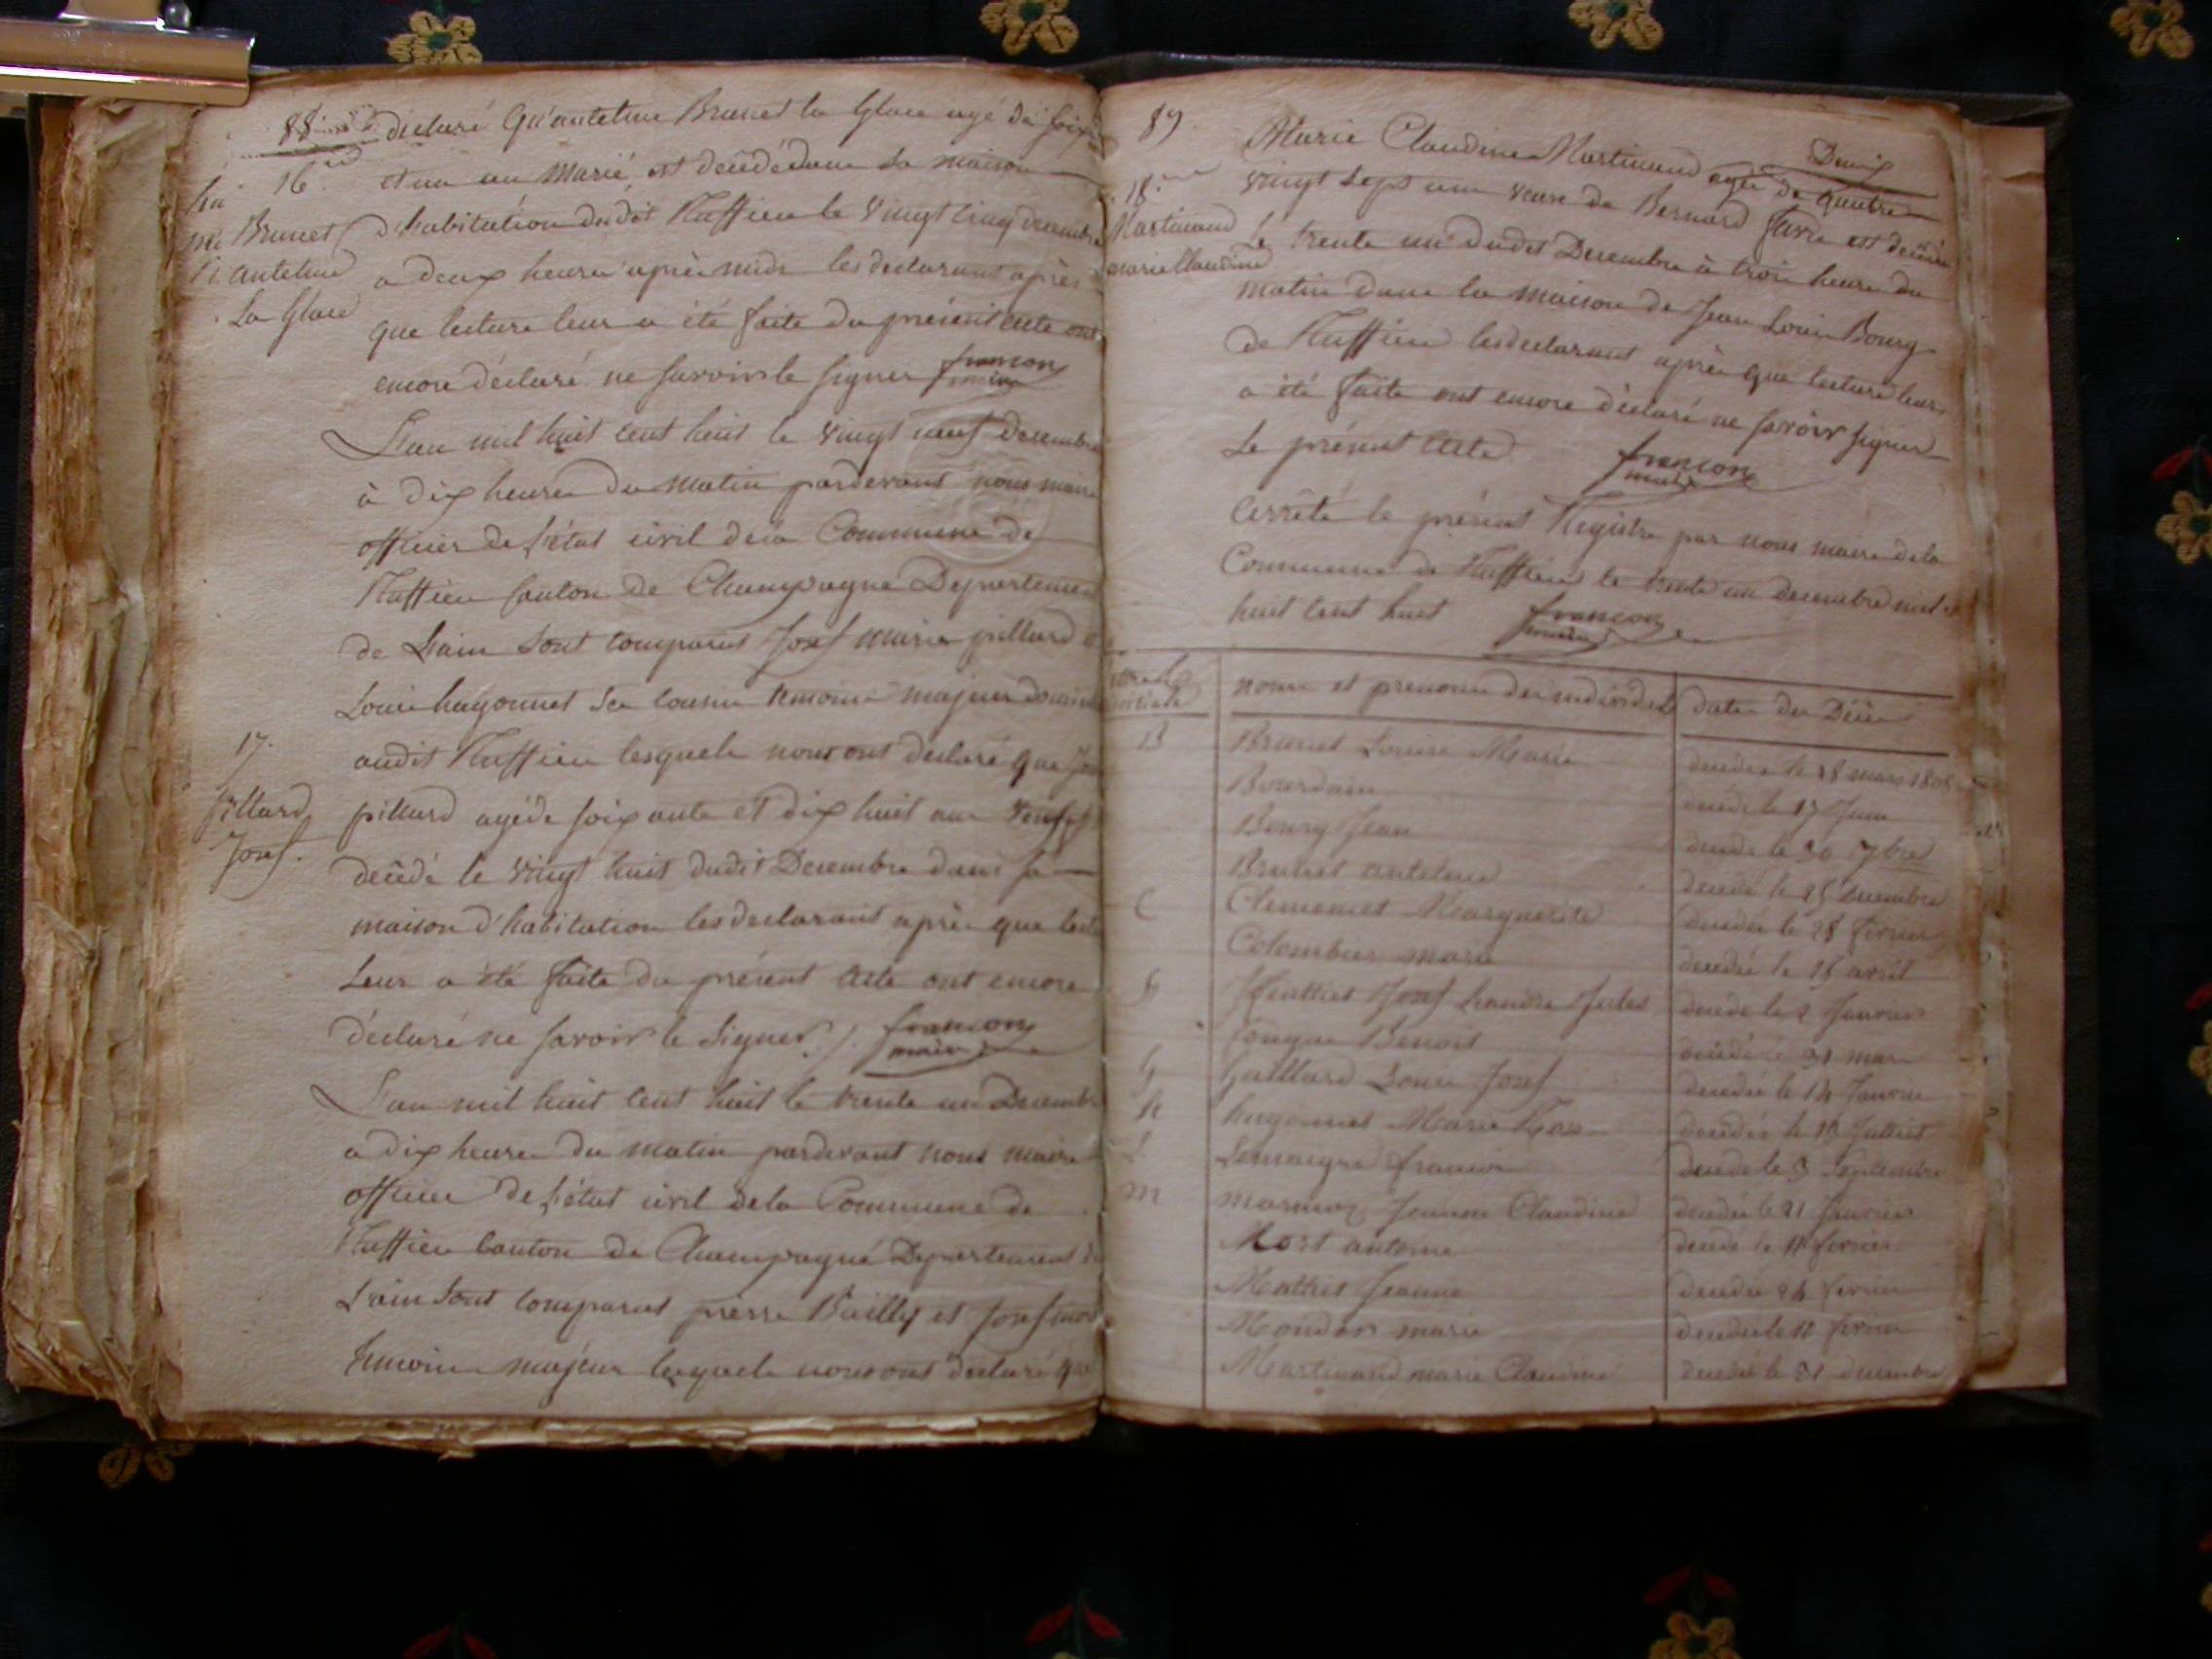 88
déclaré Qu'antelme Brunet la Glace agé de soix
16
et un an Marié est décédé dans sa maison
Brunet
antelme
La Glace
d'habitation dudit Ruffieu le vingt cinq decembre
a deux heures après midi les declarants après
que lecture leur a été faite du présent acte ont
encore déclaré ne savoir le signer francon
maire
L'an mil huit cent huit le vingt neuf decembre
à dix heures du matin pardevant nous maire
officier de l'état civil de la Commune de
Ruffieu Canton de Champagne Departement
de Lain sont comparus Josef marie pillard
Louis hugonnet ses cousin temoins majeur
17.
pillard
Josef.
audit Ruffieu lesquels nous ont declaré que
pillard agé de soixante et dix huit ans
décédé le vingt huit dudit Decembre dans sa
maison d'habitation les declarants après que
Leur a été faite du présent Acte ont encore
déclaré ne savoir le Signer francon
maire
L'an mil huit cent huit le trente un Decembre
a dix heures du matin pardevant nous maire
officier de l'état civil de la Commune de
Ruffieu Canton de Champagne Departement de
Lain sont comparus pierre Bailly et Josef
temoins majeur lesquels nous ont déclaré que
89
Marie Claudine Martinand agée de quatre
18
Martinand
marie Claudine
vingt sept ans veuve de Bernard favre est décédée
Le trente un dudit Decembre à trois heures du
matin dans la maison de Jean Louis Bourg
de Ruffieu les declarants après que lecture leur
a été faite ont encore déclaré ne savoir signer
Le présent Acte francon
maire
Arrêté le présent Registre par nous maire de la
Commune de Ruffieu le trente un Decembre mil
huit cent huit francon
maire
noms et prenoms des individus date du Décès
B Brunet Louise Marie décédée le 28 mars 1808
Bourdain décédé le 17 Juin
Bourg Jean décédé le 30 7bre
Brunet antelme décédé le 25 decembre
C Clemencet Marguerite décédée le 28 fevrier
Colombier marie décédée le 15 avril
Josef Leandre Jules décédé le 2 Janvier
Benoit décédé le 31 mars
G Gaillard Louis Josef décédé le 14 Janvier
H hugonnet Marie Rose décédée le 13 Juillet
L Lemaigre francois décédé le 3 Septembre
M marmoz Jeanne Claudine décédée le 21 Janvier
Mort antoine décédé le 11 fevrier
Mathiet Jeanne décédée 24 fevrier
marie décédée le 11 fevrier
Martinand marie Claudine décédée le 31 decembre